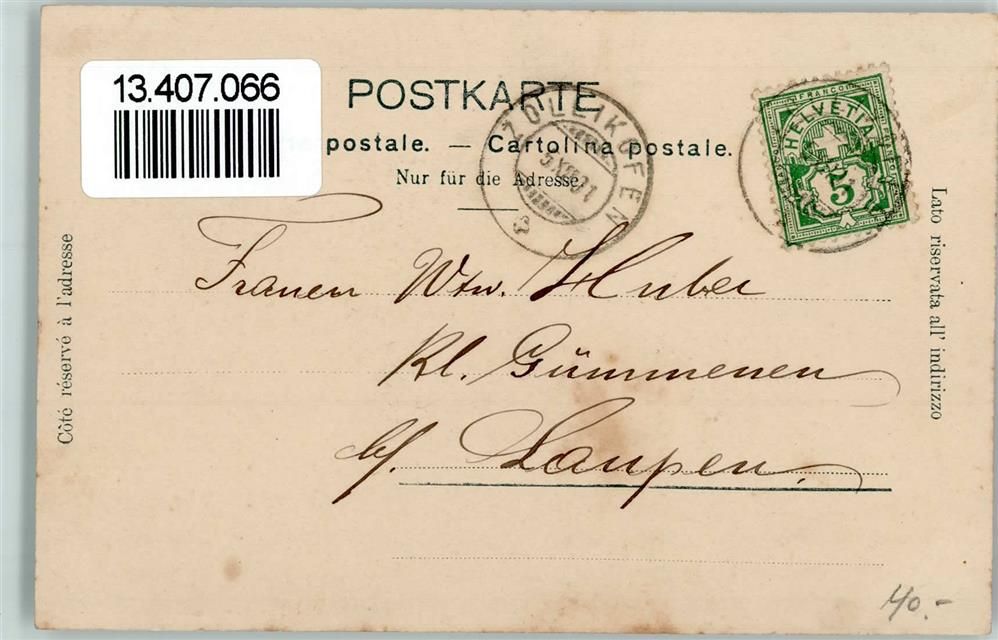 13.407.066
POSTKARTE
postale. — Cartolina postale.
Nur für die Adresse.
ZOLLIKOFEN
FRANCO
HELVETIA
5
Frauen Wtw. Huber
Kl. Gümmenen
b/. Laupen.
Côté réservé à l'adresse
Lato riservata all' indirizzo
40.-